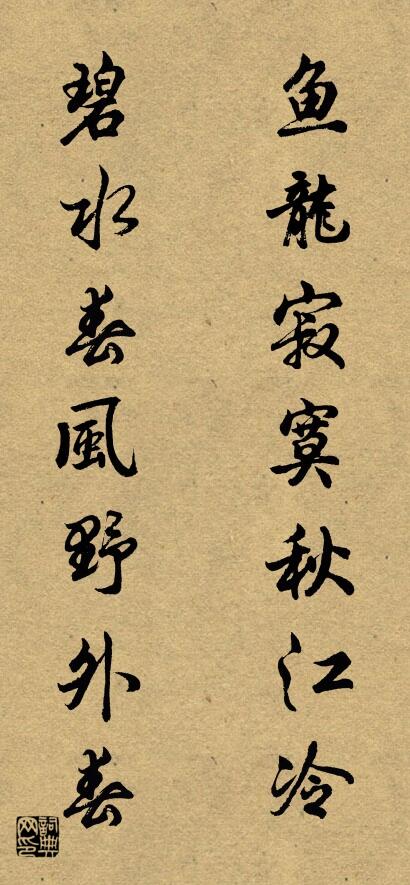 鱼龍寂寞秋江冷
碧水春風野外春
詞典網印